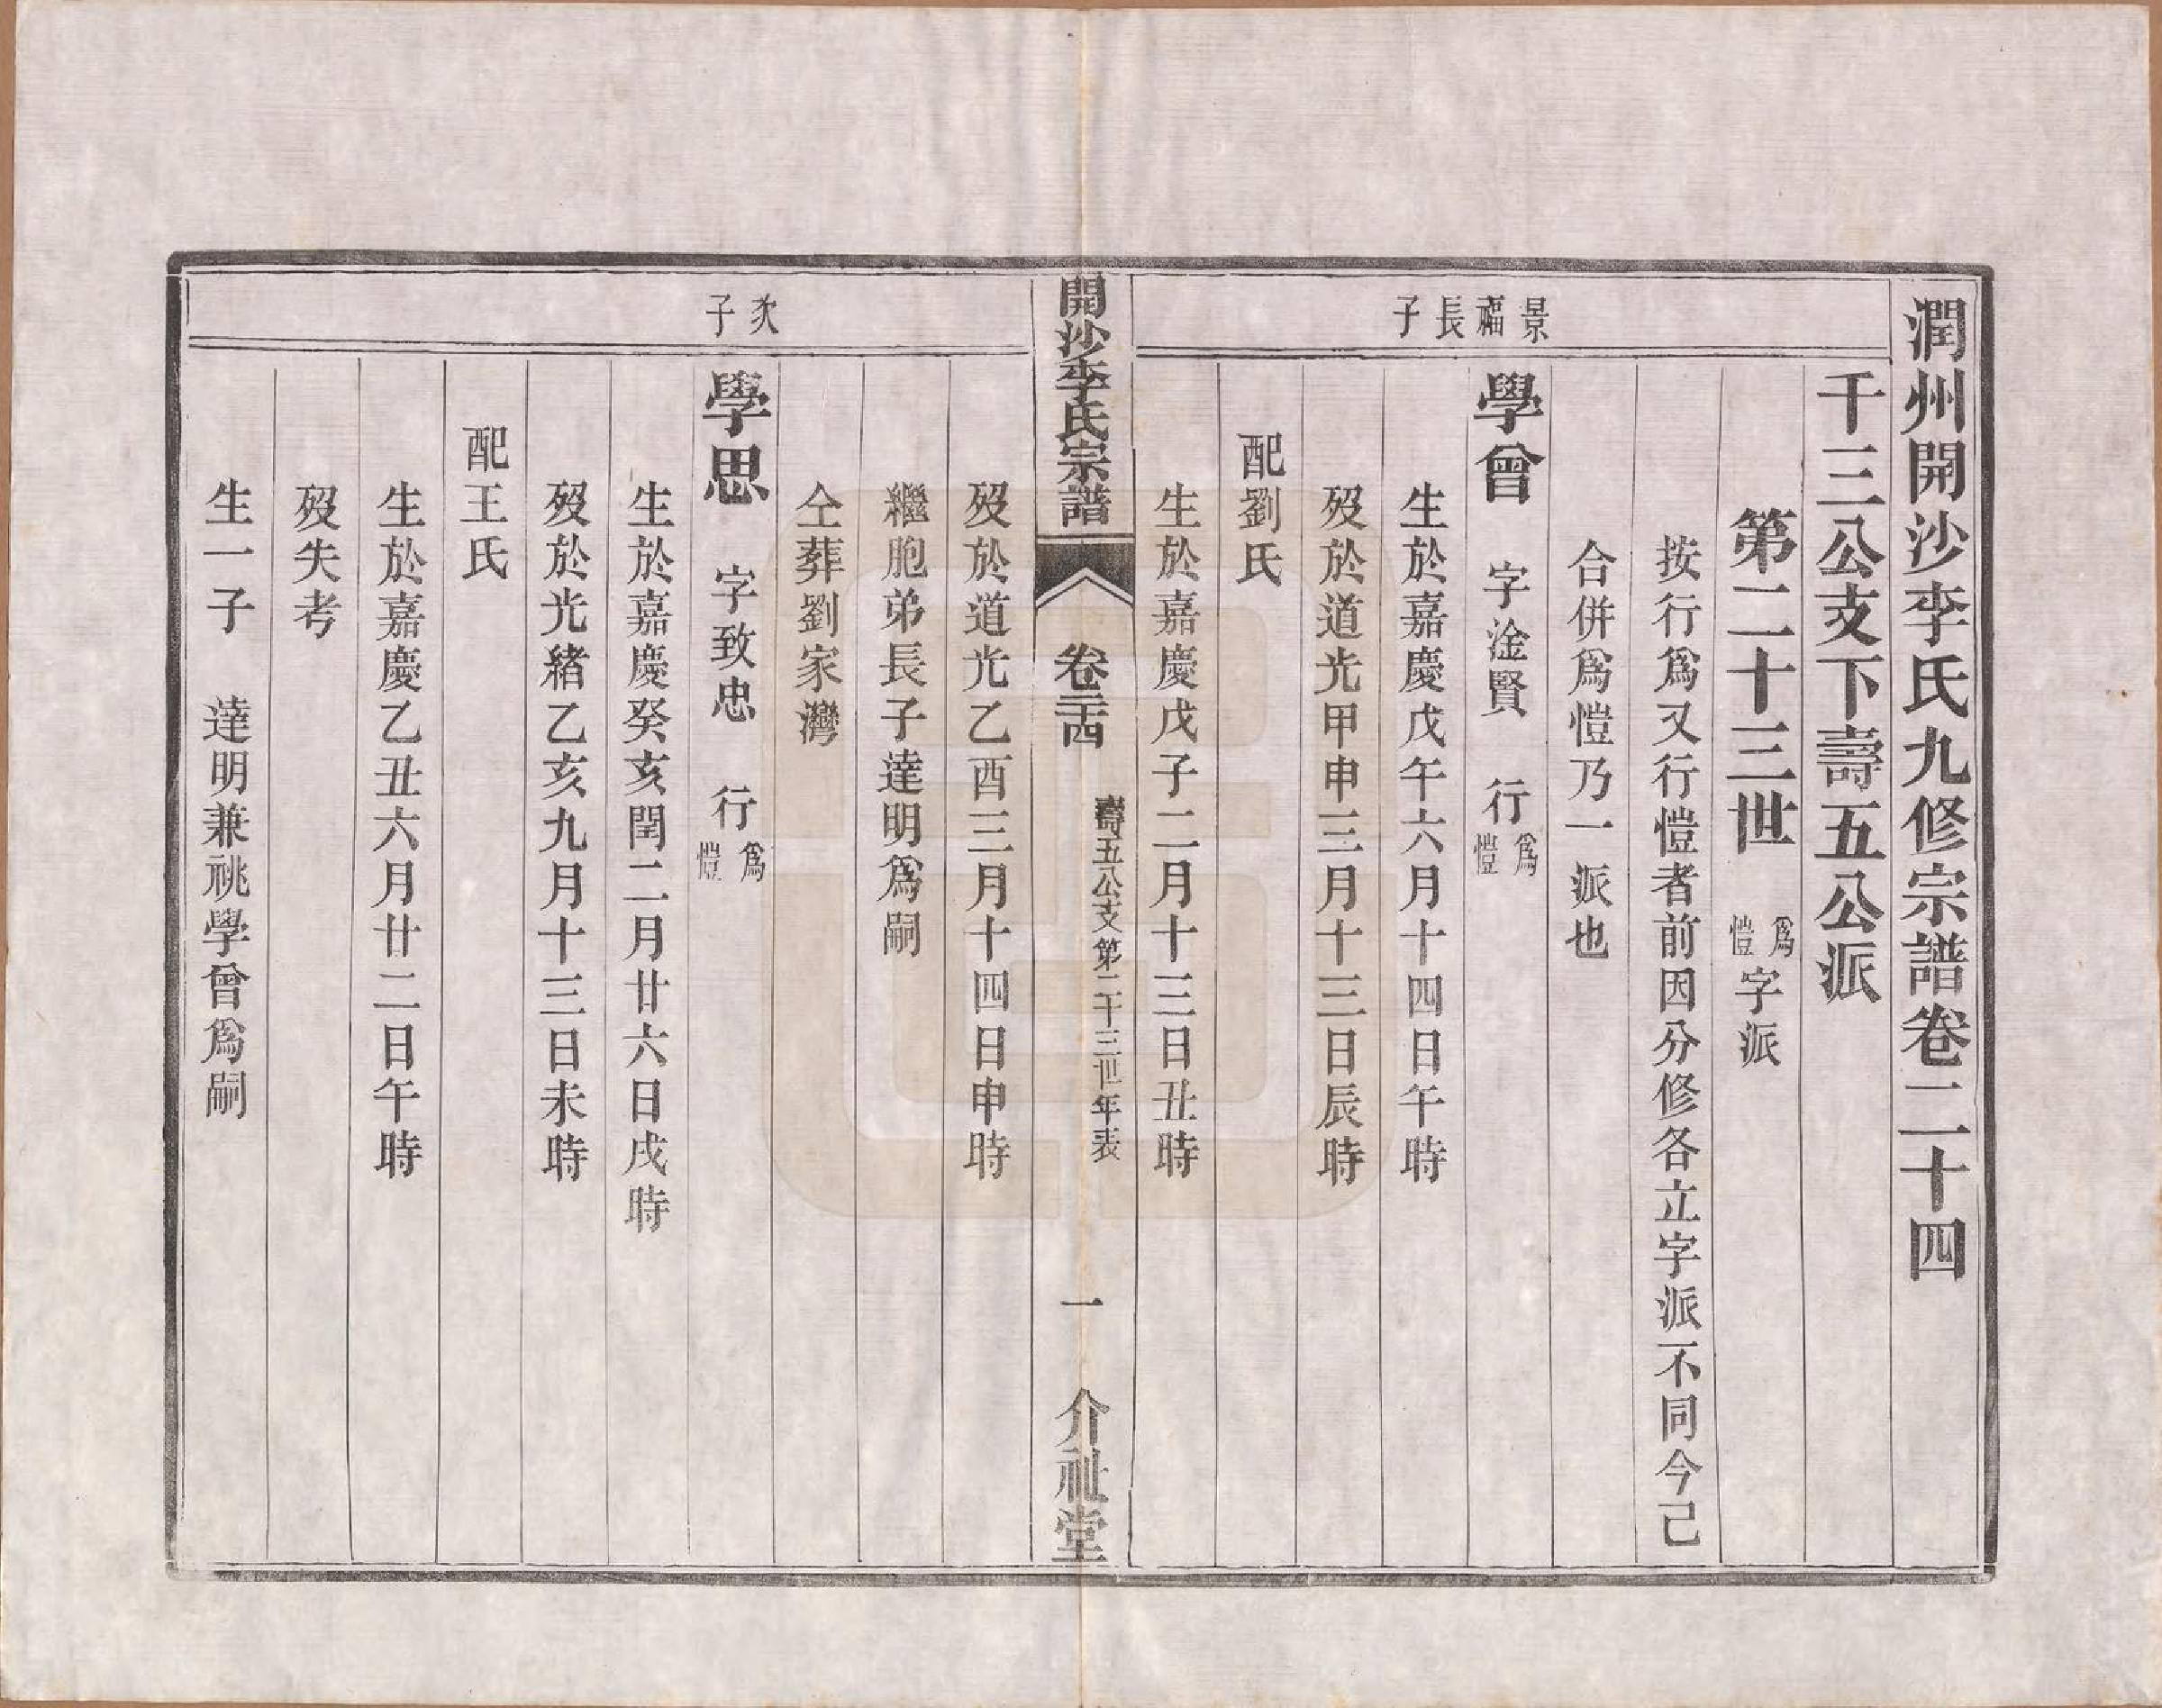 潤州開沙李氏九修宗譜卷二十四
千三公支下壽五公派
第二十三世 爲愷字派
按行爲又行愷者前因分修各立字派不同今已
合併爲愷乃一派也
景福長子
學曾 字淦賢 行爲愷
生於嘉慶戊午六月十四日午時
歿於道光甲申三月十三日辰時
配劉氏
生於嘉慶戊子二月十三日丑時
開沙李氏宗譜 卷二十四 壽五公支第二十三世年表 一 介祉堂
歿於道光乙酉三月十四日申時
繼胞弟長子達明爲嗣
仝葬劉家灣
次子
學思 字致忠 行爲愷
生於嘉慶癸亥閏二月廿六日戌時
歿於光緒乙亥九月十三日未時
配王氏
生於嘉慶乙丑六月廿二日午時
歿失考
生一子 達明兼祧學曾爲嗣